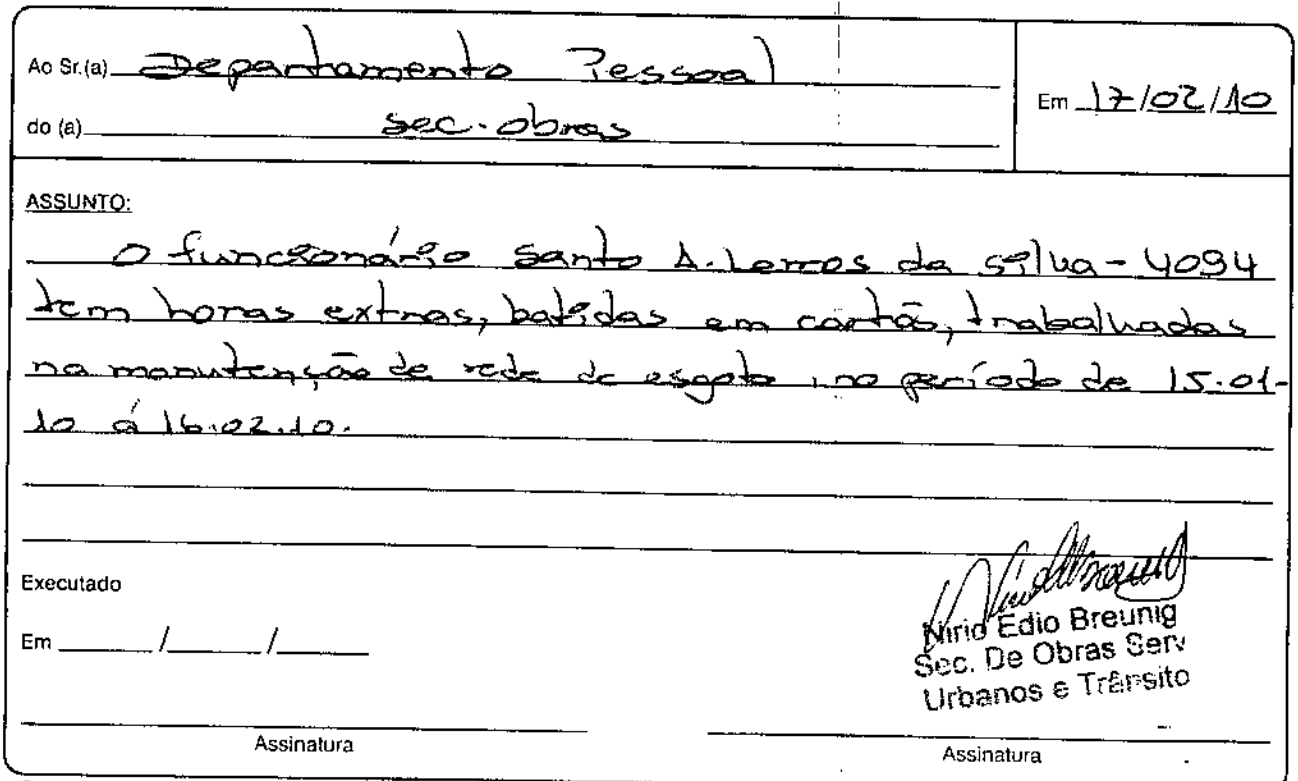 Ao Sr.(a) Departamento Pessoal
Em 17/02/10
do (a) sec. obras
ASSUNTO:
O funcionário Santo A. Lemos da silva - 4094
tem horas extras, batidas em cartão, trabalhadas
na manutenção de rede de esgoto, no período de 15.01-
10 á 16.02.10.
Executado
Em ____/____/____
Nirio Edio Breunig
Sec. De Obras Serv
Urbanos e Trânsito
Assinatura
Assinatura